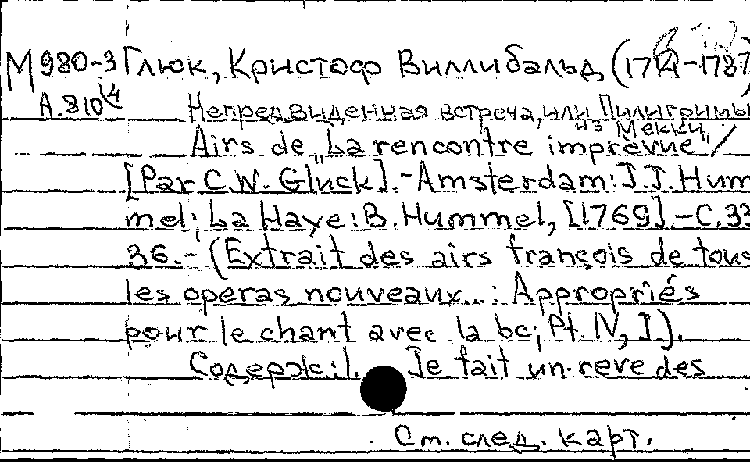 М 980-3 Глюк, Кристоф Виллибальд (1714-1787)
А.810 14
Непредвиденная встреча, или Пилигримы
из Мекки
Airs de „La rencontre imprévue" /
[Par C.W. Gluck]. - Amsterdam: J.J. Hum
mel; La Haye: B. Hummel, [1769]. - С. 33
36. - (Extrait des airs françois de tous
les operas nouveaux...: Appropriés
pour le chant avec la bc; Pt. IV, I).
Содерж.: 1. Je fait un reve des
См. след. карт.